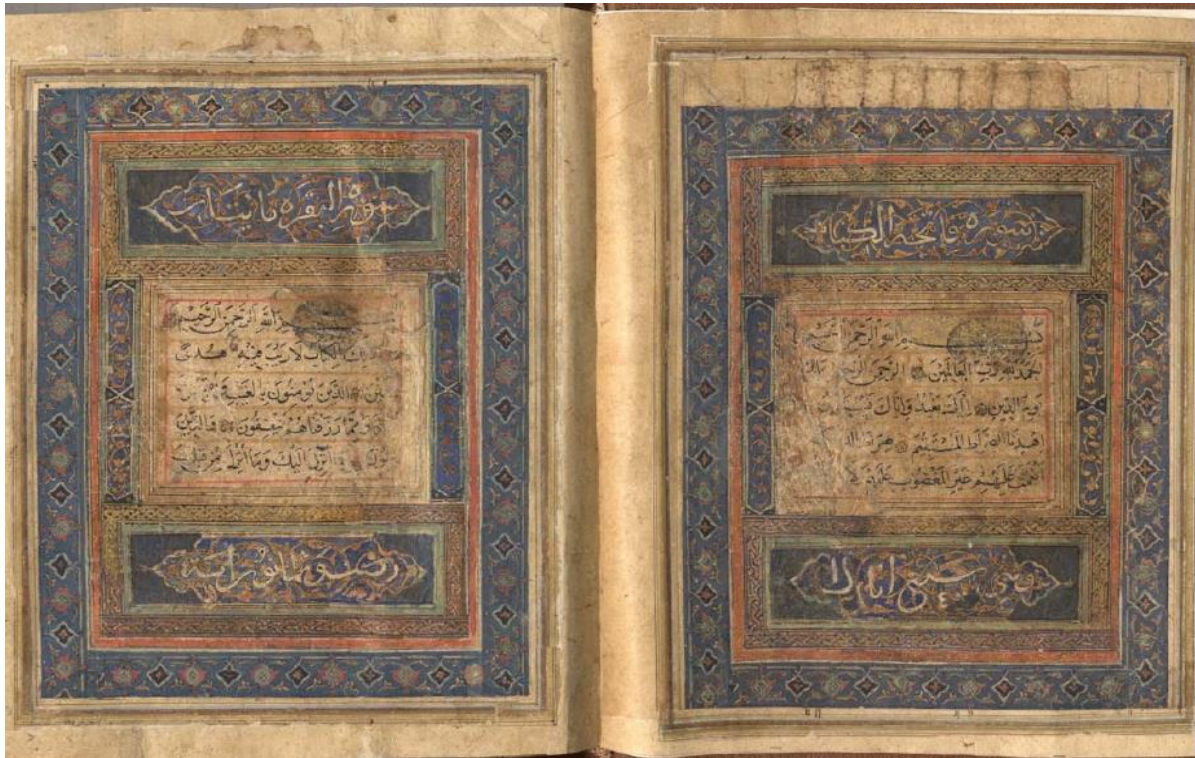 سورة فاتحة الكتاب
بسم الله الرحمن الرحيم
الحمد لله رب العالمين الرحمن الرحيم مالك
يوم الدين اياك نعبد واياك نستعين
اهدنا الصراط المستقيم صراط
انعمت عليهم غير المغضوب عليهم
وهي سبع ايات
سورة البقرة مايتان
بسم الله الرحمن الرحيم
ذلك الكتاب لا ريب فيه هدى
الذين يؤمنون بالغيب
ومما رزقناهم ينفقون والذين
انزل اليك وما انزل من قبلك
وثمانون اية